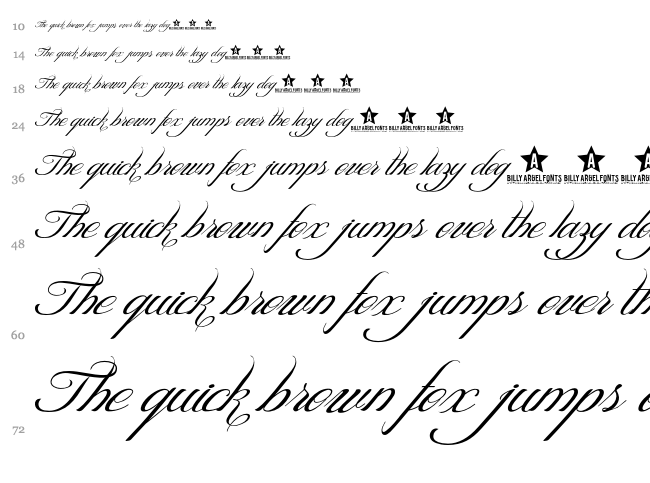 10 The quick brown fox jumps over the lazy dog BILLY ARGEL FONTS BILLY ARGEL FONTS BILLY ARGEL FONTS
14 The quick brown fox jumps over the lazy dog BILLY ARGEL FONTS BILLY ARGEL FONTS BILLY ARGEL FONTS
18 The quick brown fox jumps over the lazy dog BILLY ARGEL FONTS BILLY ARGEL FONTS BILLY ARGEL FONTS
24 The quick brown fox jumps over the lazy dog A BILLY ARGEL FONTS A BILLY ARGEL FONTS A BILLY ARGEL FONTS
36 The quick brown fox jumps over the lazy dog A BILLY ARGEL FONTS A BILLY ARGEL FONTS A BILLY ARG
48 The quick brown fox jumps over the lazy do
60 The quick brown fox jumps over th
72 The quick brown fox jumps o